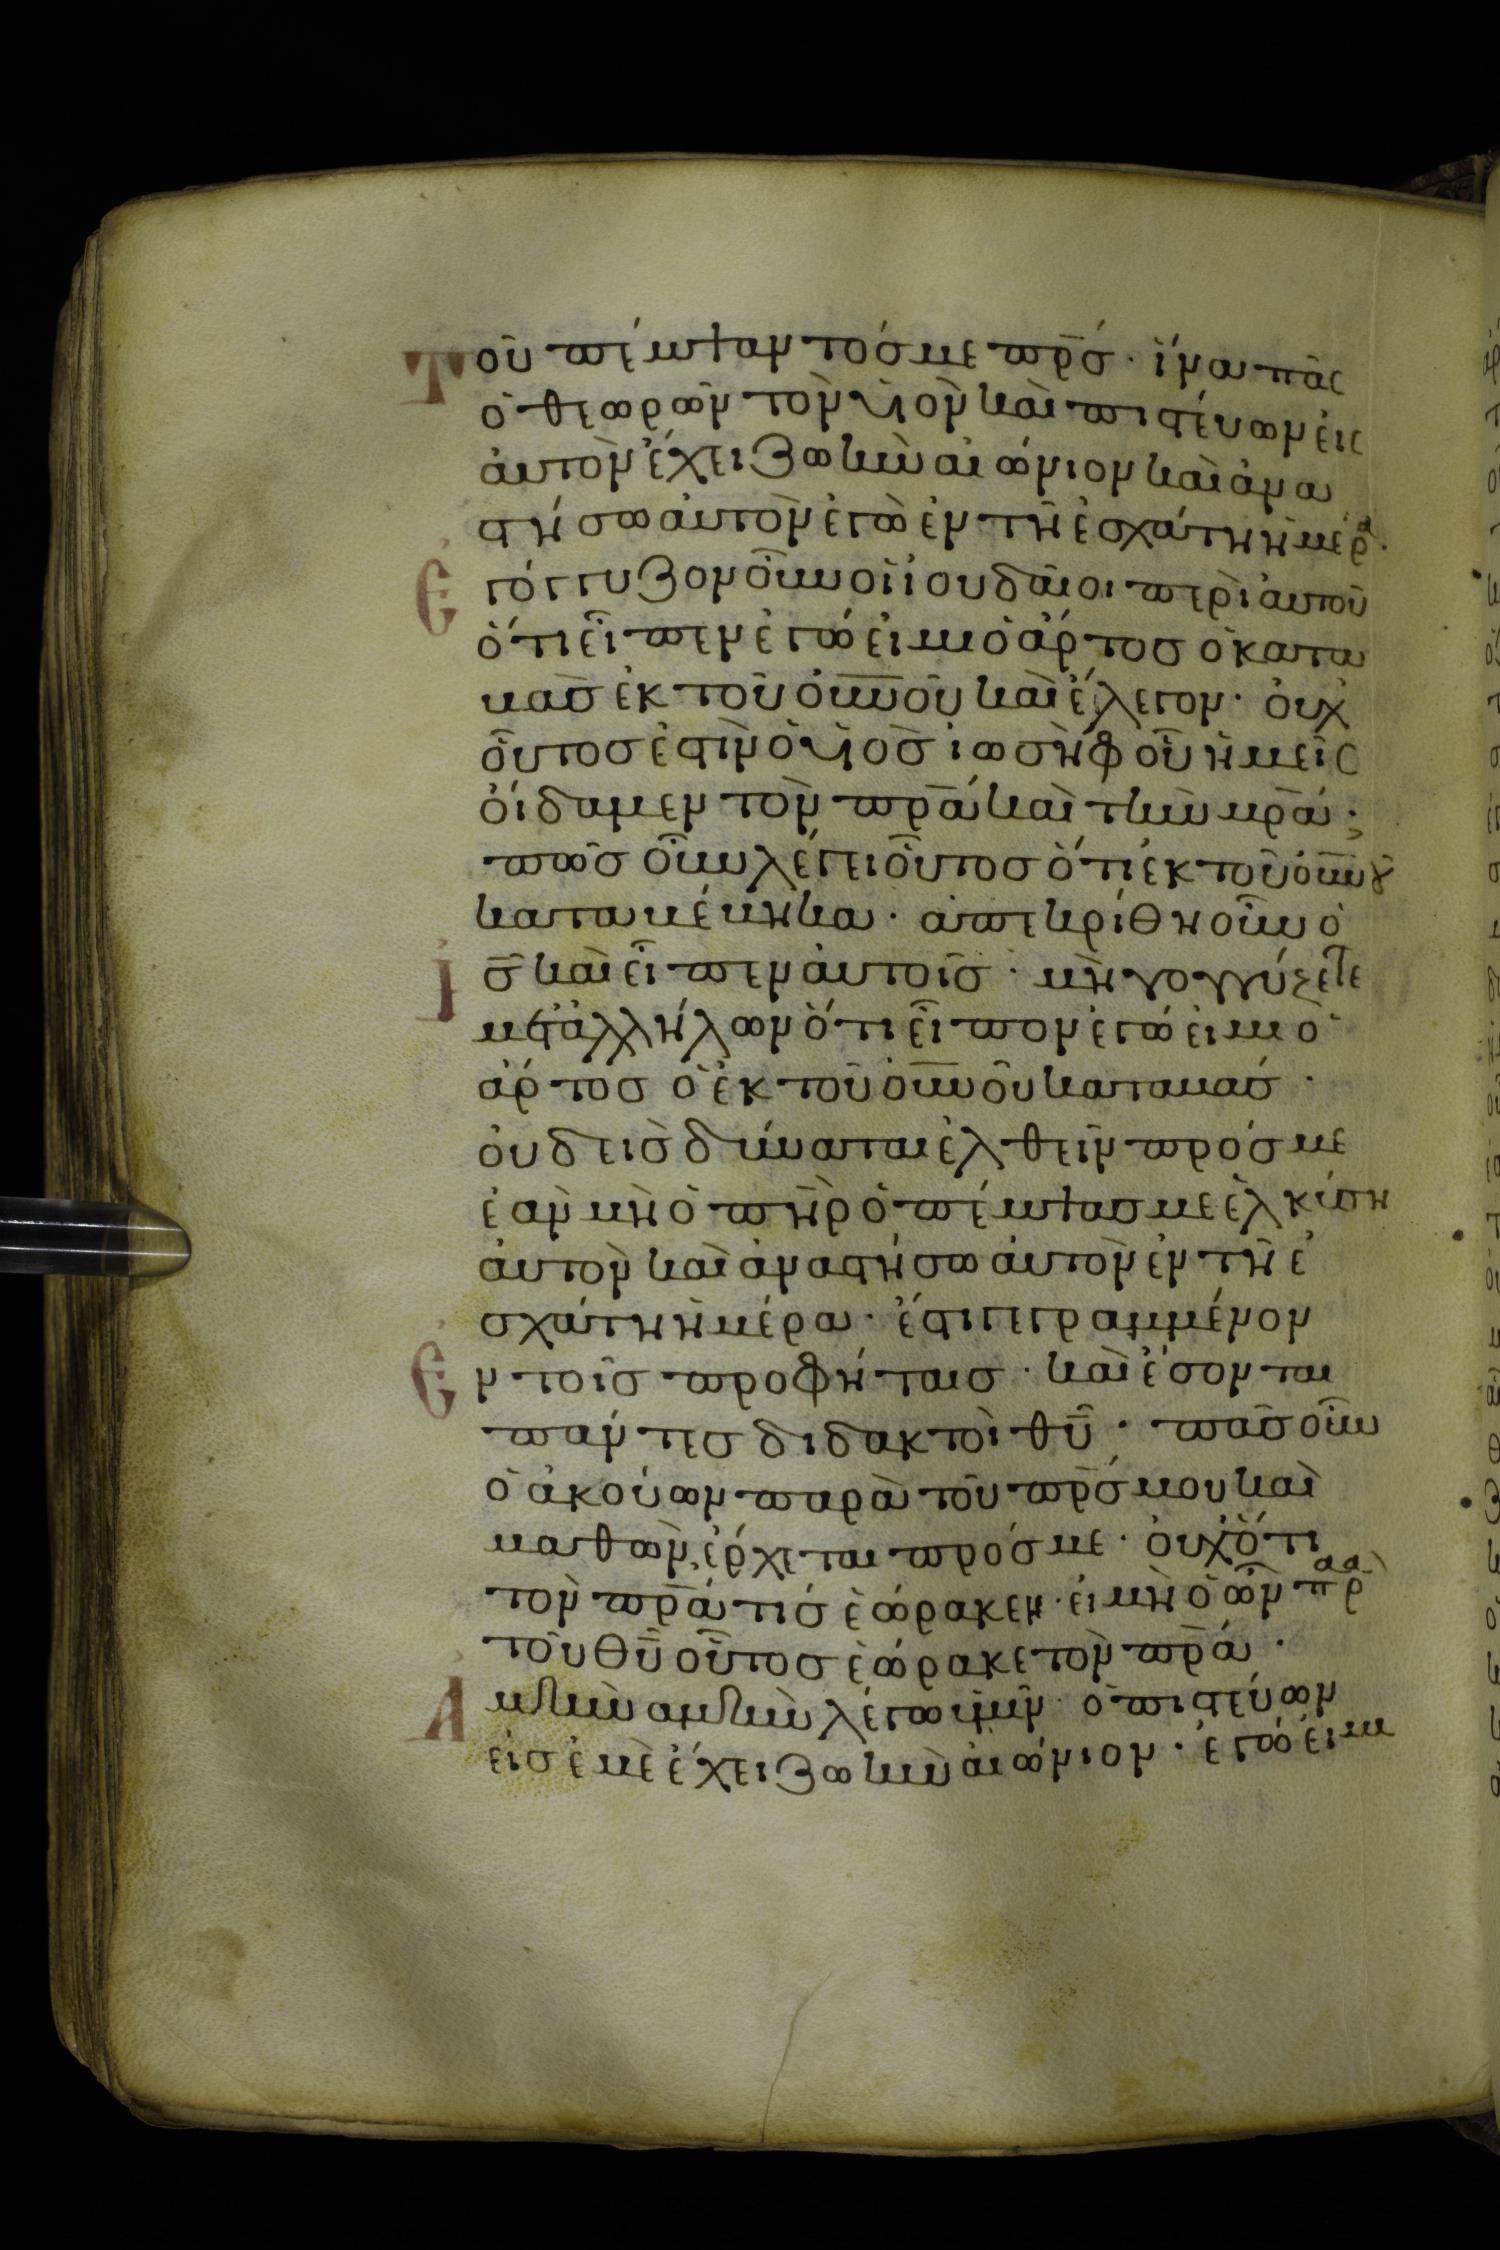 Τοῦ πέμψαντόσ με πρ̅σ· ἵνα πᾶς
ὁ θεωρῶν τὸν υἱὸν καὶ πιστέυων ἐις
ἀυτὸν ἔχει ζωὴν αἰώνιον καὶ ἀνα
στήσω ἀυτὸν ἐγὼ ἐν τῆ ἐσχάτη ἡμέρα·
Ἐγόγγυζον οὖν οἱ ἰουδαῖοι περὶ ἀυτοῦ
ὅτι εἶπεν ἐγώ εἰμι ὁ ἄρτοσ ὁ κατα
βὰσ ἐκ τοῦ ὀυ̅νοῦ καὶ ἔλεγον· ὀυχ
οὗτοσ ἐστὶν ὁ υἱὸσ ἰωσὴφ οὗ ἡμεῖς
ὀίδαμεν τὸν πρ̅α καὶ τὴν μρ̅α;
πῶσ οὖν λέγει οὗτοσ ὅτι ἐκ τοῦ ὀυ̅νοῦ
καταβέβηκα· ἀπεκρίθη οὖν ὁ
Ἰσ̅ καὶ εἶπεν ἀυτοῖσ· μὴ γογγύζετε
μετ ἀλλήλων ὅτι εἶπον ἐγώ εἰμι ὁ
ἄρτοσ ὁ ἐκ τοῦ ὀυ̅νοῦ καταβάσ·
ὀυδεὶσ δύναται ἐλθεῖν πρόσ με
ἐὰν μὴ ὁ πη̅ρ ὁ πέμψασ με ἑλκύση
ἀυτὸν καὶ ἀναστήσω ἀυτὸν ἐν τῆ ἐ
σχάτη ἡμέρα· ἔστι γεγραμμένον
Ἐν τοῖσ προφήταισ· καὶ ἔσονται
πάντεσ διδακτοὶ θυ̅· πᾶσ οὖν
ὁ ἀκούων παρὰ τοῦ πρ̅σ μου καὶ
μαθὼν, ἔρχεται πρόσ με· ὀυχ ὅτι
τὸν πρ̅α τὶσ ἑώρακεν· ἐι μὴ ὁ ὢν παρὰ
τοῦ θυ̅ οὗτοσ ἑώρακε τὸν πρ̅α·
Ἀμὴν ἀμὴν λέγω ὑμῖν· ὁ πιστέυων
ἐισ ἐμὲ ἔχει ζωὴν ἀιώνιον· ἐγώ ἐιμι